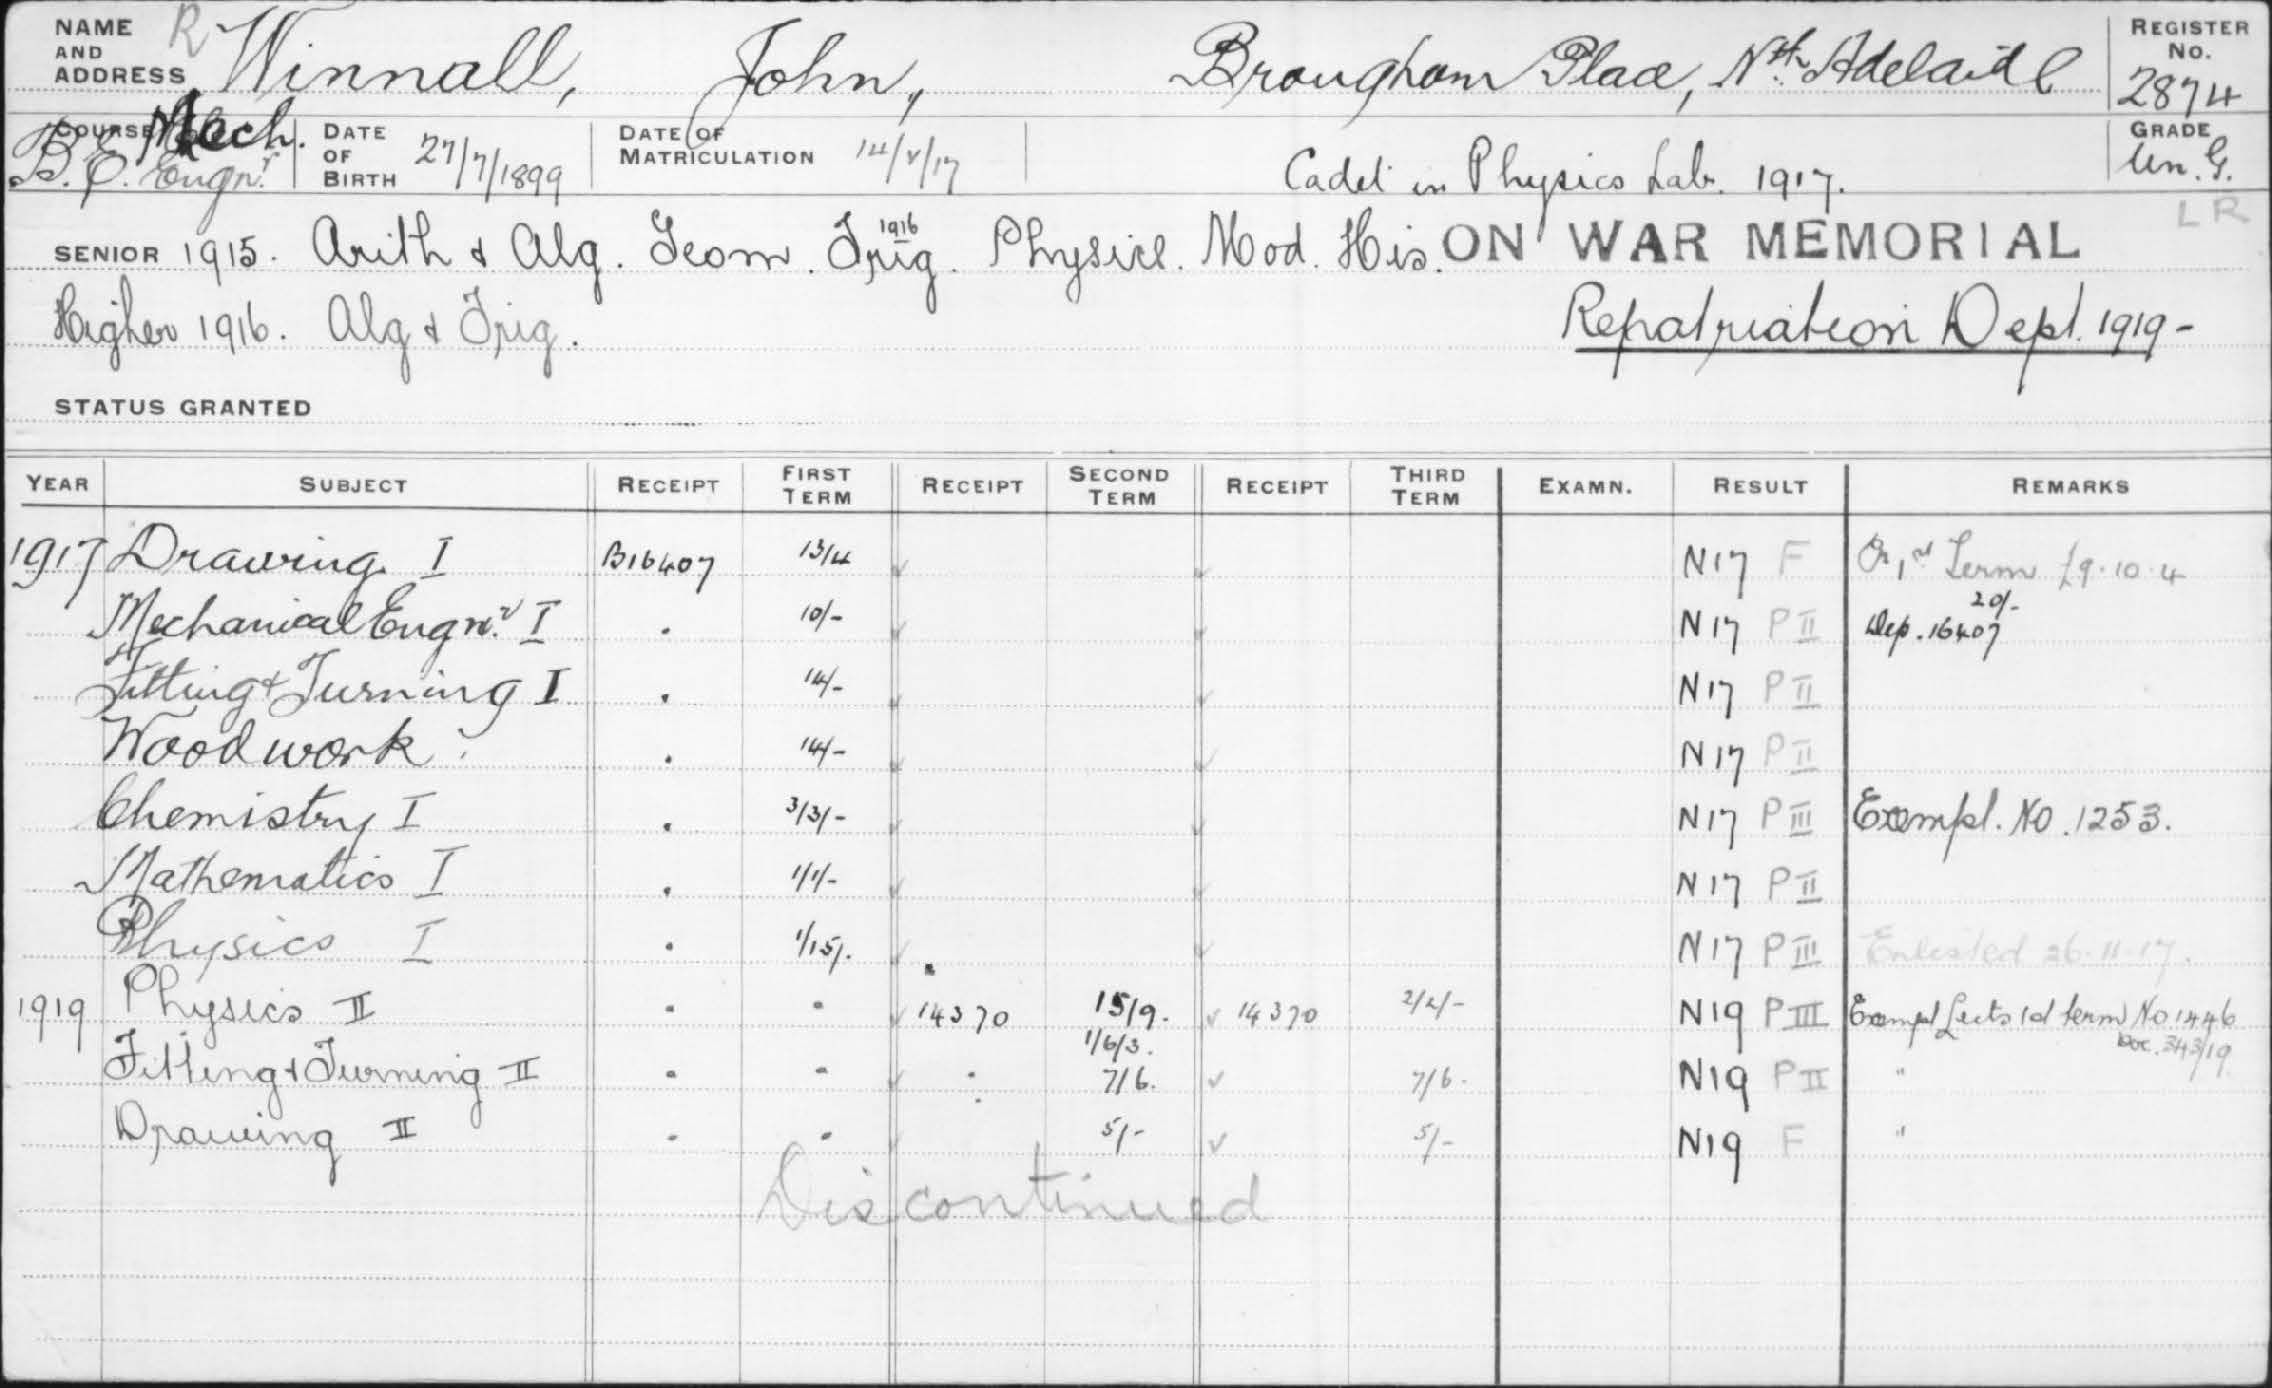 NAME AND ADDRESS R Winnall, John, Brougham Place, Nth Adelaide
REGISTER No. 2874
COURSE Mech. B.E. Engnr.
DATE OF BIRTH 27/7/1899
DATE OF MATRICULATION 14/V/17
Cadet in Physics Lab. 1917.
GRADE Un. G.
LR
SENIOR 1915. Arith & Alg. Geom. Trig 1916. Physics. Mod. His. ON WAR MEMORIAL
Higher 1916. Alg & Trig. Repatriation Dept. 1919-
STATUS GRANTED
YEAR SUBJECT RECEIPT FIRST TERM RECEIPT SECOND TERM RECEIPT THIRD TERM EXAMN. RESULT REMARKS
1917 Drawing I B16407 13/4 ✓ ✓ N17 F Cr 1st Term £9.10.4
Mechanical Engnr I . 10/- ✓ ✓ N17 P II Dep. 16407 20/-
Fitting & Turning I . 14/- ✓ ✓ N17 P II
Woodwork . 14/- ✓ ✓ N17 P II
Chemistry I . 3/3/- ✓ ✓ N17 P III Exempt. No. 1253.
Mathematics I . 1/1/- ✓ ✓ N17 P II
Physics I . 1/15/. ✓ ✓ N17 P III Enlisted 26-11-17.
1919 Physics II " " ✓ 14370 15/9. ✓ 14370 2/2/- N19 P III Exempt Lects 1st term No 1446
1/6/3. Doc. 343/19
Fitting & Turning II " " ✓ . 7/6. ✓ 7/6. N19 P II "
Drawing II " " ✓ 5/- ✓ 5/- N19 F "
Discontinued